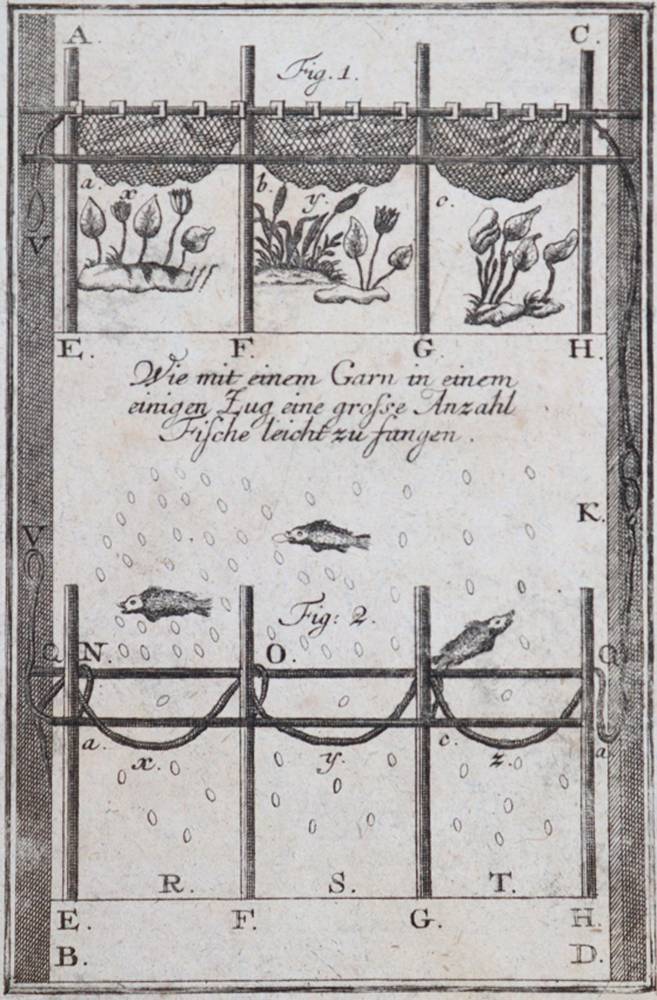 A. C.
Fig. 1.
a. x b. y. c.
V
E. F. G. H.
Wie mit einem Garn in einem
einigen Zug eine grosse Anzahl
Fische leicht zu fangen.
K.
V
Fig: 2.
Q N. O. Q
a. c. a
x. y. z.
R. S. T.
E. F. G. H.
B. D.